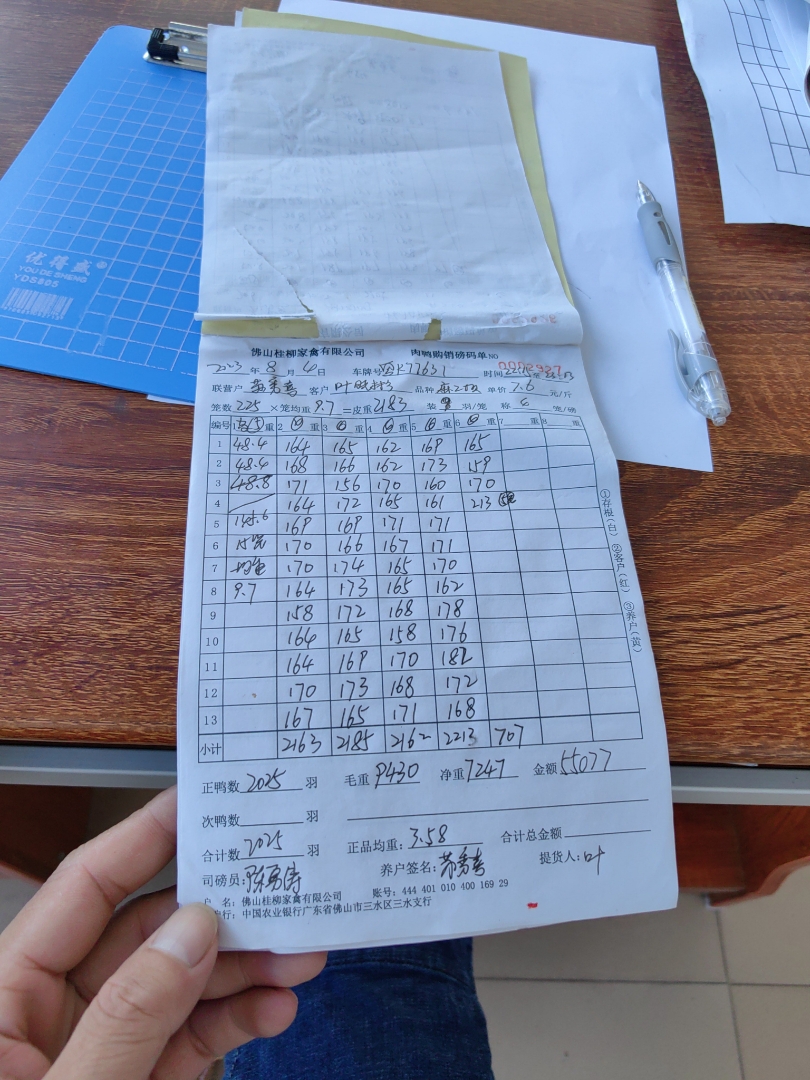 优得盛®
YOU DE SHENG
YDS805
佛山桂柳家禽有限公司 肉鸭购销磅码单 NO 0002937
2023 年 8 月 4 日 车牌号 K77631 时间 22:15 至
联营户 客户 叶 品种 单价 7.6 元/斤
笼数 225 ×笼均重 9.7 =皮重 2183 装 9 羽/笼 称 6 笼/磅
编号 1 重 2 重 3 重 4 重 5 重 6 重 7 重 8 重
1 48.4 164 165 162 169 165
2 48.4 168 166 162 173 159
3 48.8 171 156 170 160 170
4 164 172 165 161 213
5 145.6 169 169 171 171
6 15笼 170 166 167 171
7 均重 170 174 165 170
8 9.7 164 173 165 162
9 158 172 168 178
10 164 165 158 176
11 164 169 170 182
12 170 173 168 172
13 167 165 171 168
小计 2163 2185 2162 2213 707
①存根(白) ②客户(红) ③养户(黄)
正鸭数 2025 羽 毛重 9430 净重 7247 金额 55077
次鸭数 羽
合计数 2025 羽 正品均重: 3.58 合计总金额
司磅员: 养户签名: 提货人: 叶
户 名: 佛山桂柳家禽有限公司 账号: 444 401 010 400 169 29
行: 中国农业银行广东省佛山市三水区三水支行